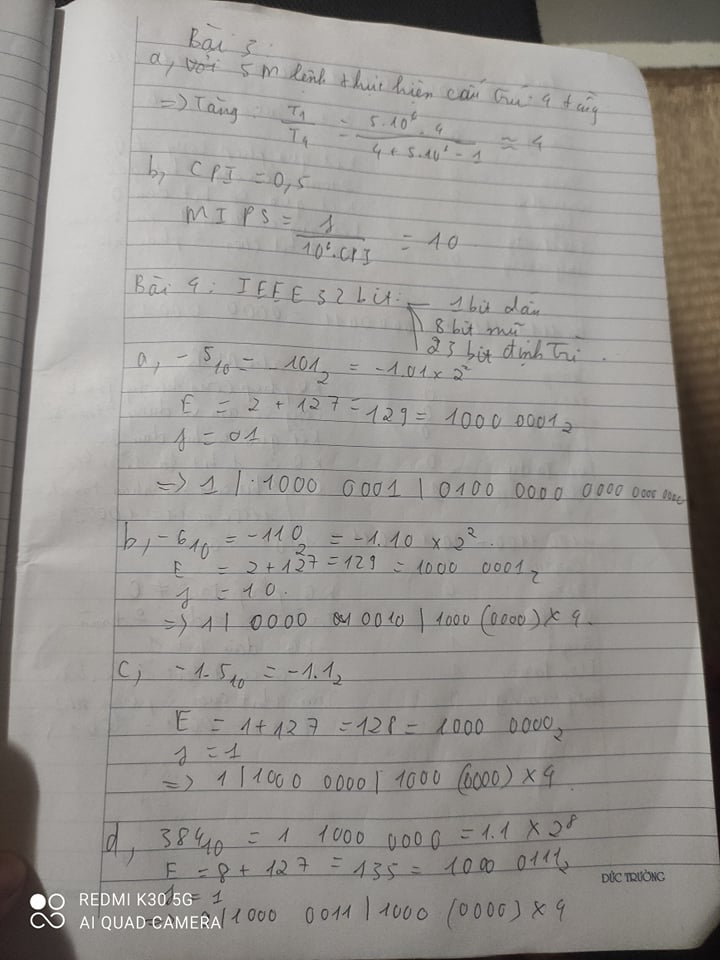 Bài 3:
a, với 5 M lệnh thực hiện cấu trúc 4 tầng
=> Tăng: T1/T4 = 5.10^6.4 / (4 + 5.10^6 - 1) ≈ 4
b, CPI = 0,5
MIPS = 1 / (10^6.CPI) = 10
Bài 4: IEEE 32 bit: 1 bit dấu
8 bit mũ
23 bit định trị.
a, -5₁₀ = -101₂ = -1.01 x 2²
E = 2 + 127 = 129 = 1000 0001₂
f = 01
=> 1 | 1000 0001 | 0100 0000 0000 0000 0000
b, -6₁₀ = -110₂ = -1.10 x 2².
E = 2 + 127 = 129 = 1000 0001₂
f = 10.
=> 1 | 0000 0010 | 1000 (0000) x 4.
c, -1.5₁₀ = -1.1₂
E = 1 + 127 = 128 = 1000 0000₂
f = 1
=> 1 | 1000 0000 | 1000 (0000) x 4
d, 384₁₀ = 1 1000 0000 = 1.1 x 2⁸
E = 8 + 127 = 135 = 1000 0111₂
ĐỨC TRƯỜNG
= 1
| 1000 0011 | 1000 (0000) x 4
REDMI K30 5G
AI QUAD CAMERA